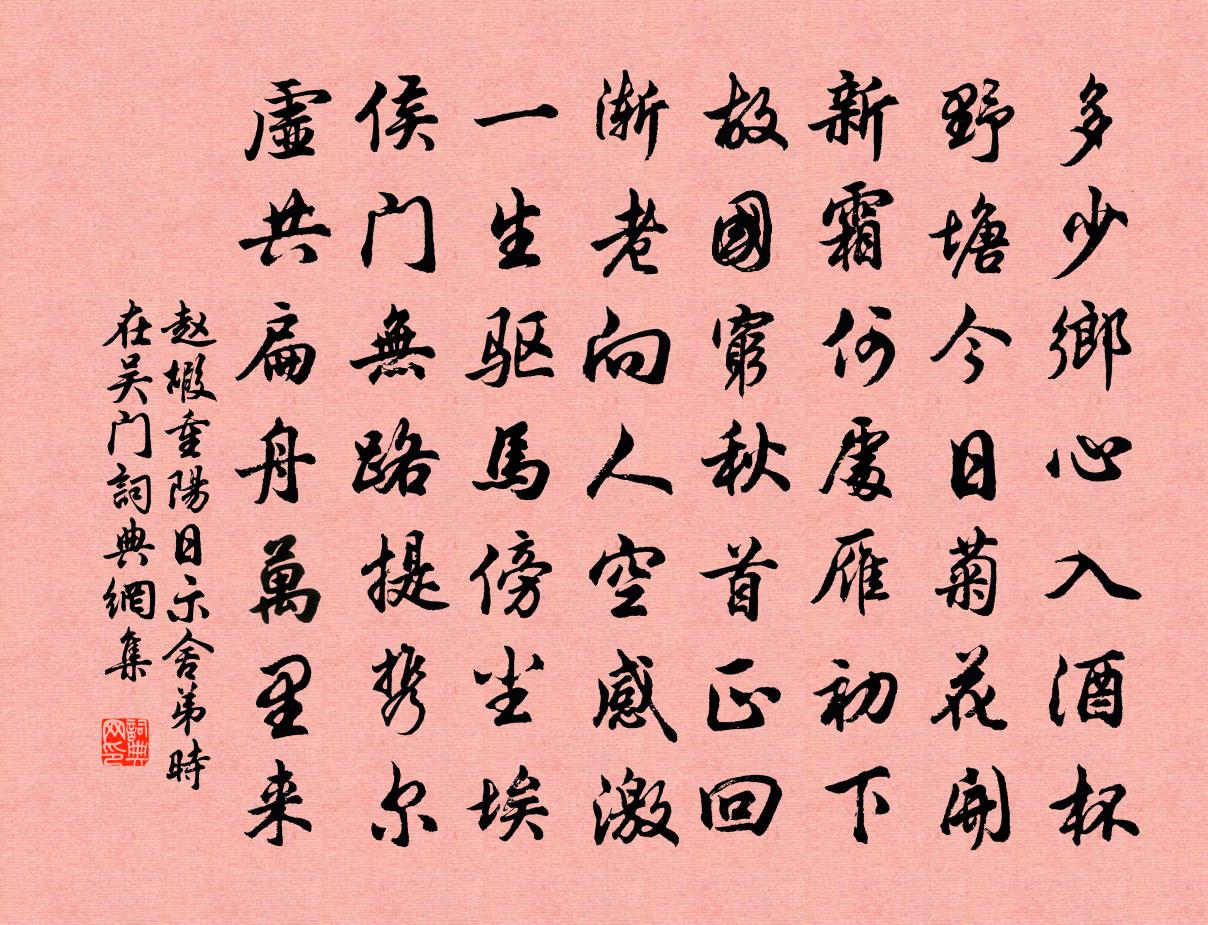 多少鄉心入酒杯
野塘今日菊花開
新霜何處雁初下
故國窮秋首正回
渐老向人空感激
一生驱馬傍尘埃
侯门無路提携尔
虛共扁舟萬里来
赵嘏重陽日示舍弟時
在吴门詞典網集
詞典网印